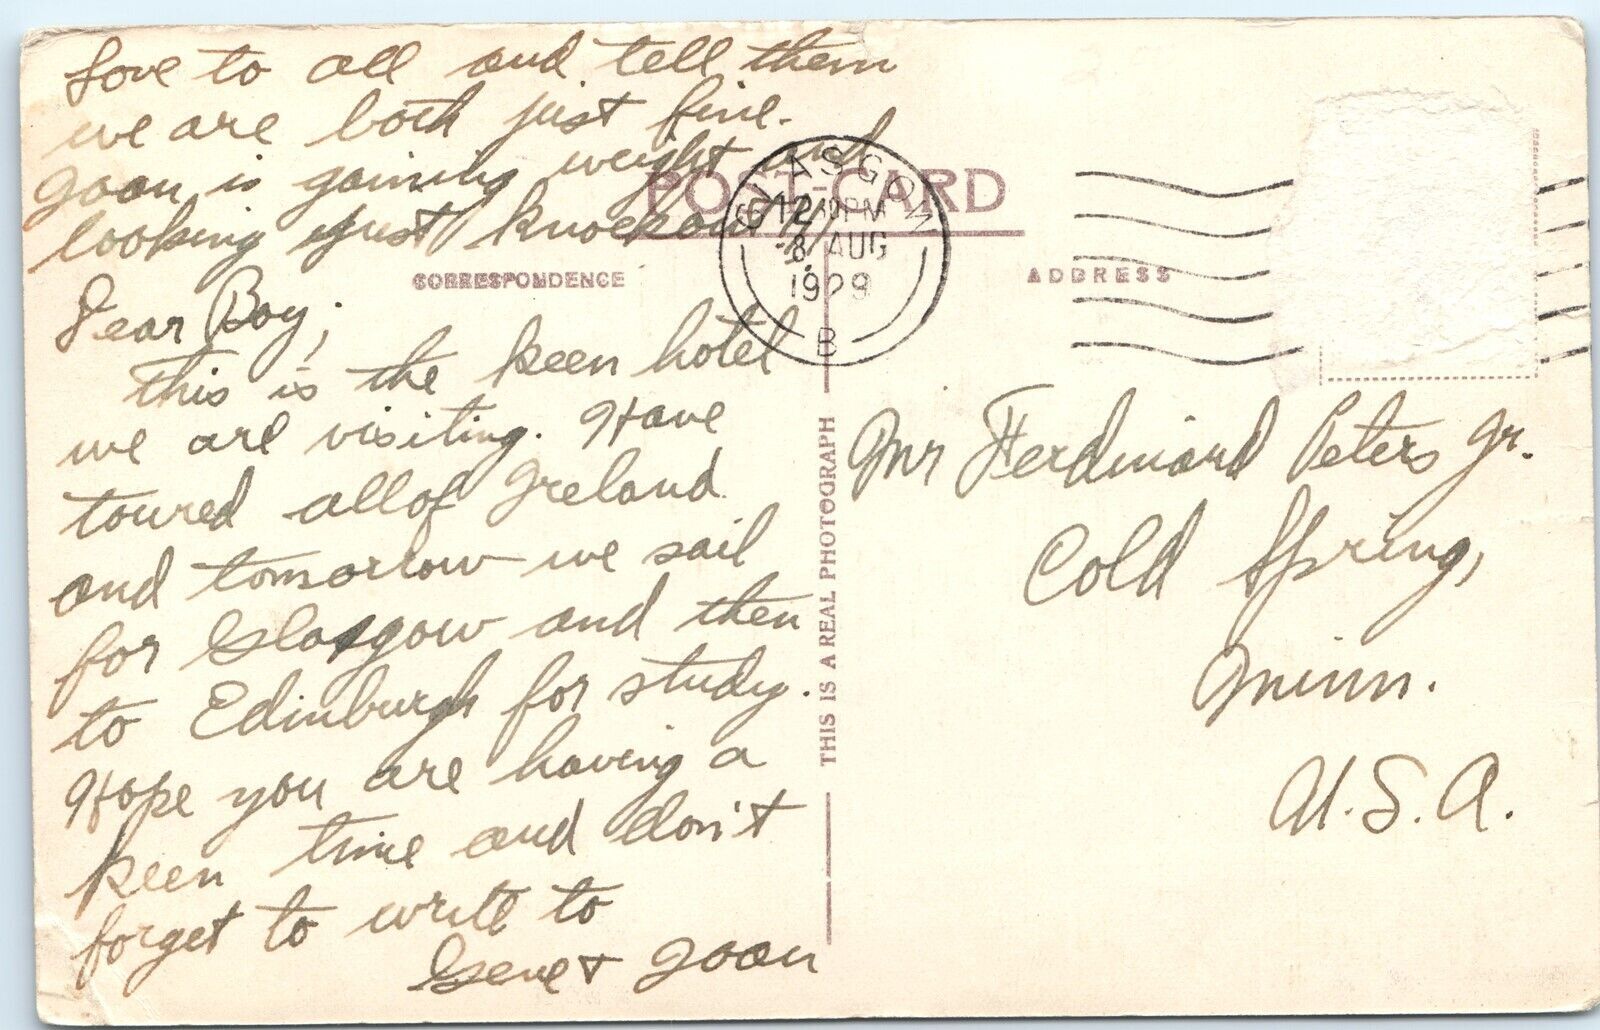 Love to all and tell them
we are both just fine.
Joan is gaining weight and
looking just knockout
POST-CARD
CORRESPONDENCE
ADDRESS
GLASGOW
12 PM
8 AUG
1929
B
Dear Boy;
This is the keen hotel
we are visiting. Have
toured all of Ireland
and tomorrow we sail
for Glasgow and then
to Edinburgh for study.
Hope you are having a
keen time and don't
forget to write to
Gene + Joan
THIS IS A REAL PHOTOGRAPH
Mr Ferdinand Peters Jr.
Cold Spring,
Minn.
U.S.A.